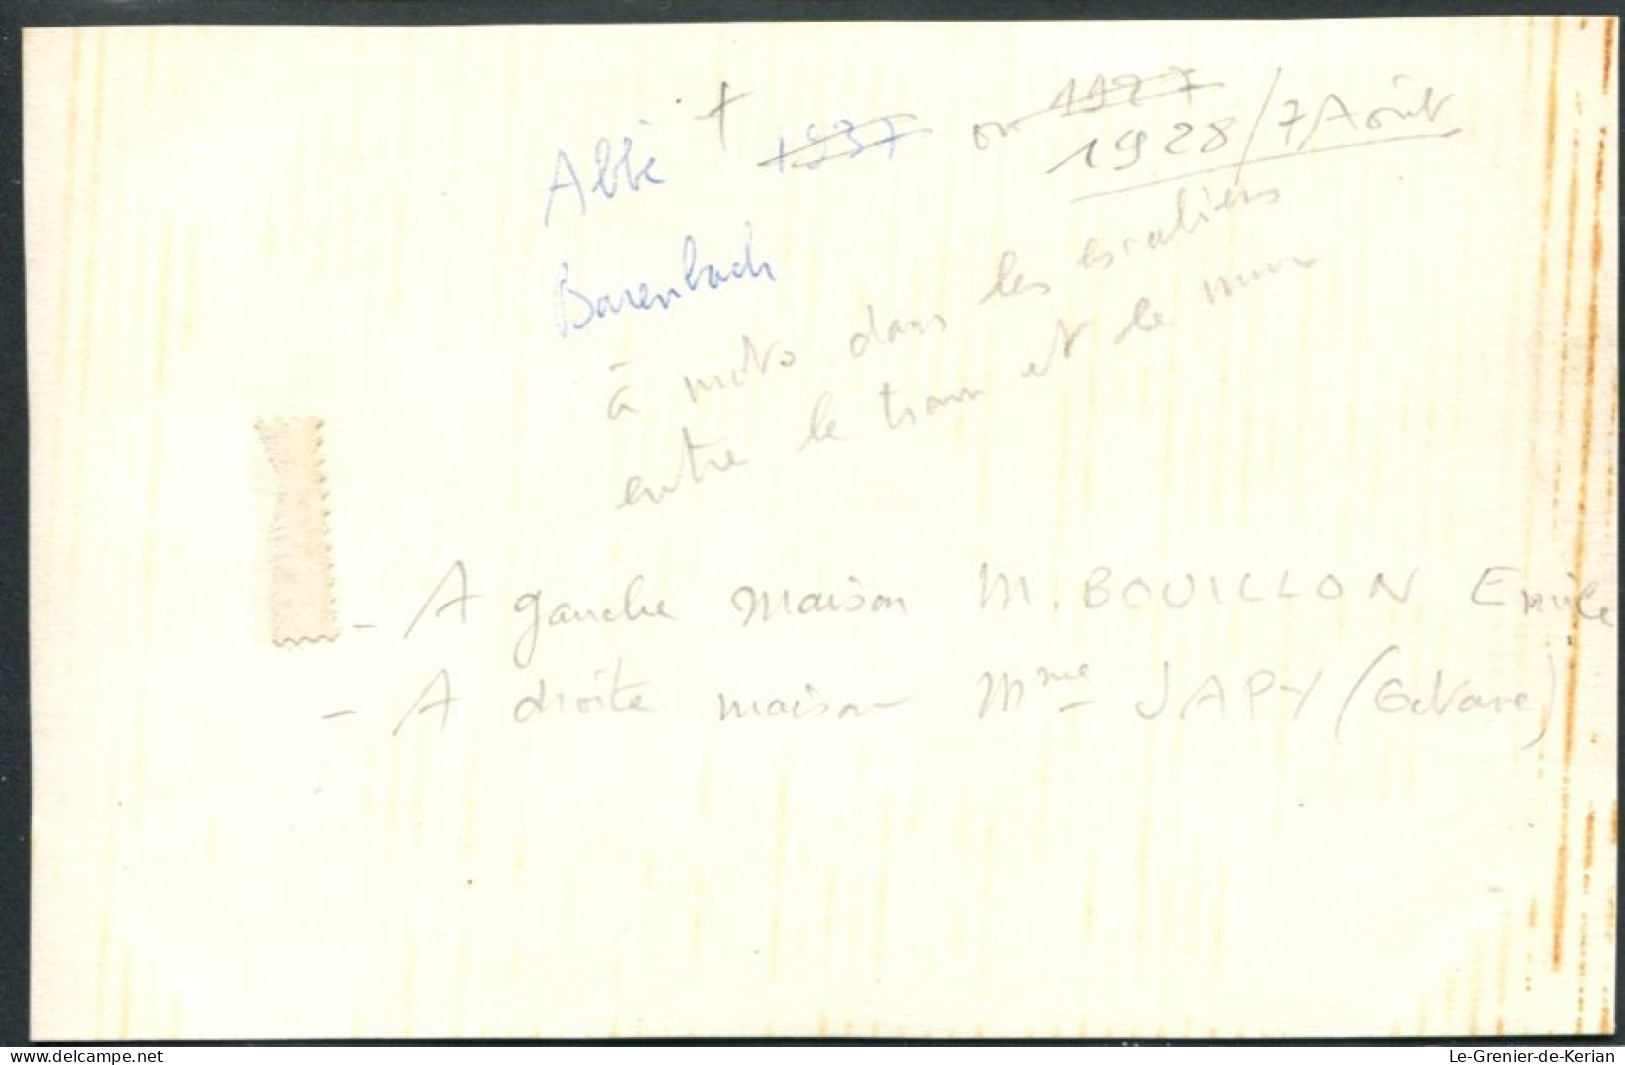 Abbé † 1937 ou 1927
1928/7 Août
Barenbach
à moto dans les escaliers
entre le tram et le mur
- A gauche maison M. BOUILLON Emile
- A droite maison Mme JAPY (Octave)
www.delcampe.net
Le-Grenier-de-Kerian